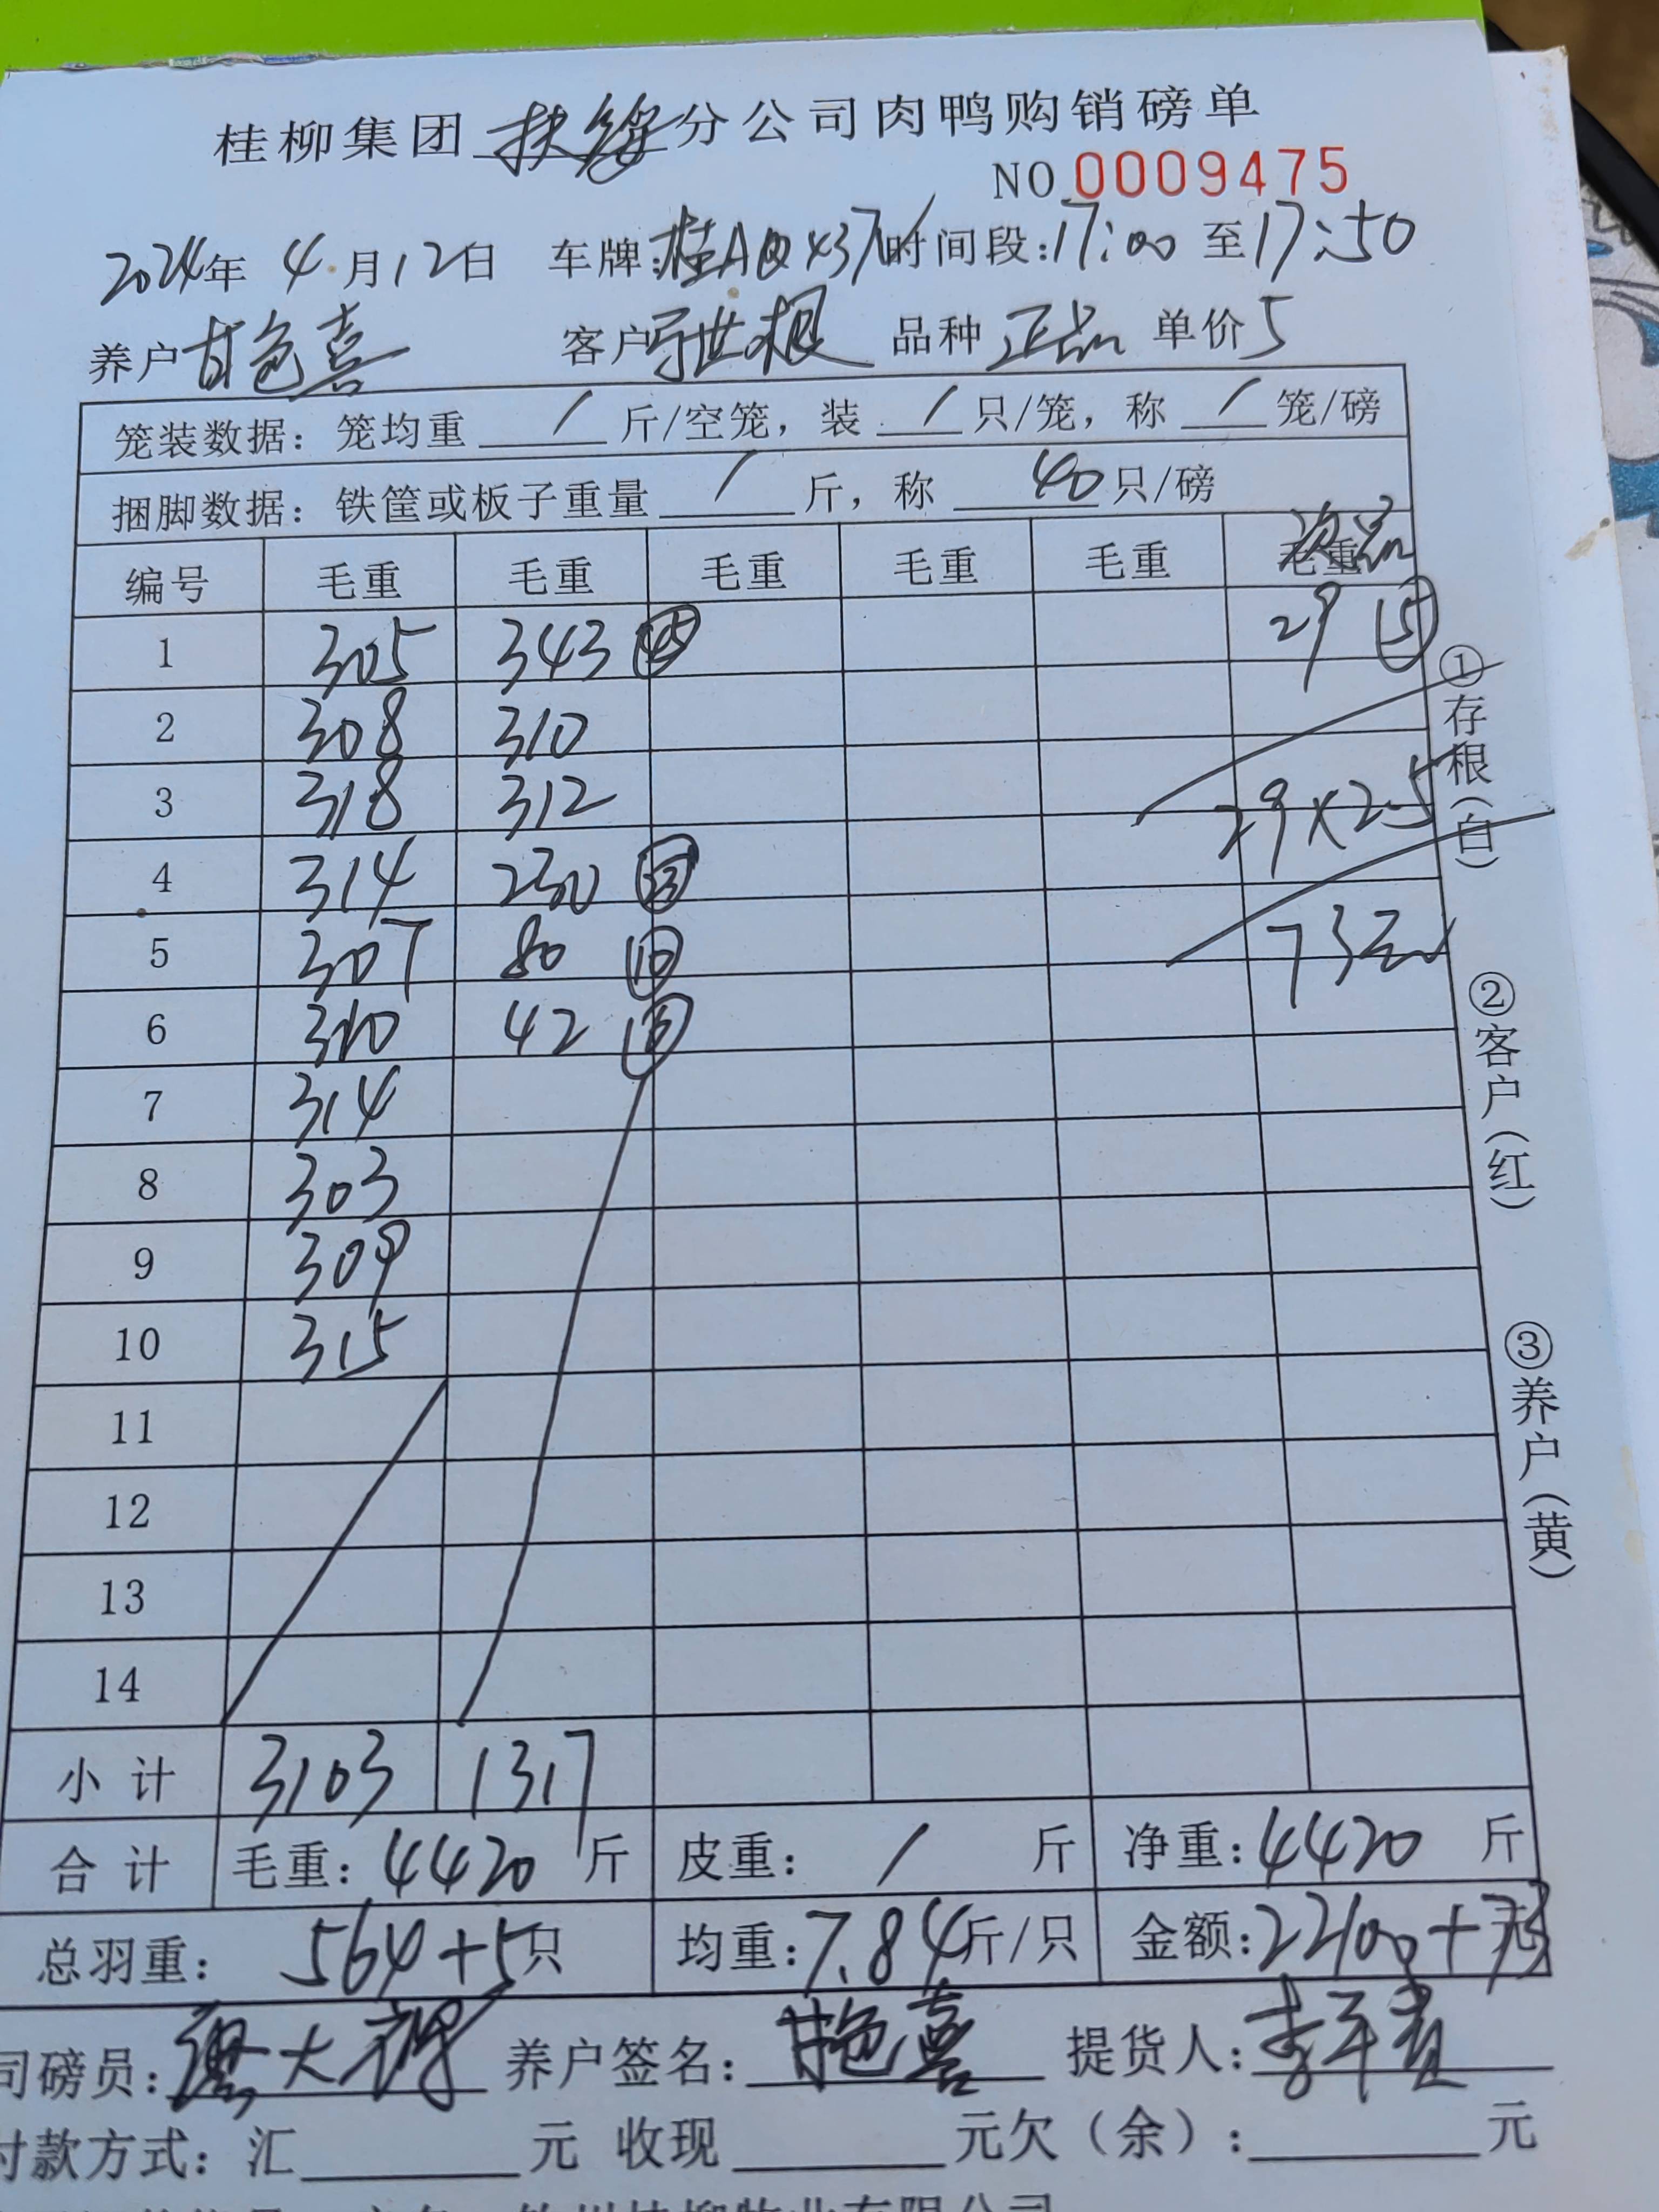 桂柳集团扶绥分公司肉鸭购销磅单
NO 0009475
2024年 4月12日 车牌:桂A 时间段:17:00 至17:50
养户 甘色喜 客户 世根 品种 正品 单价 5
笼装数据: 笼均重 / 斤/空笼, 装 / 只/笼, 称 / 笼/磅
捆脚数据: 铁筐或板子重量 / 斤, 称 40 只/磅
编号 毛重 毛重 毛重 毛重 毛重 毛重 次品
1 305 343 45 29 5
2 308 310
3 318 312 29×2.5
4 314 230
5 307 80 10 73元
6 310 42
7 314
8 303
9 309
10 315
11
12
13
14
小计 3103 1317
合计 毛重: 4420 斤 皮重: / 斤 净重: 4420 斤
总羽重: 564+5只 均重: 7.84斤/只 金额: 22100+73
司磅员: 大 养户签名: 甘色喜 提货人: 李
付款方式: 汇 元 收现 元欠(余): 元
①存根(白)
②客户(红)
③养户(黄)